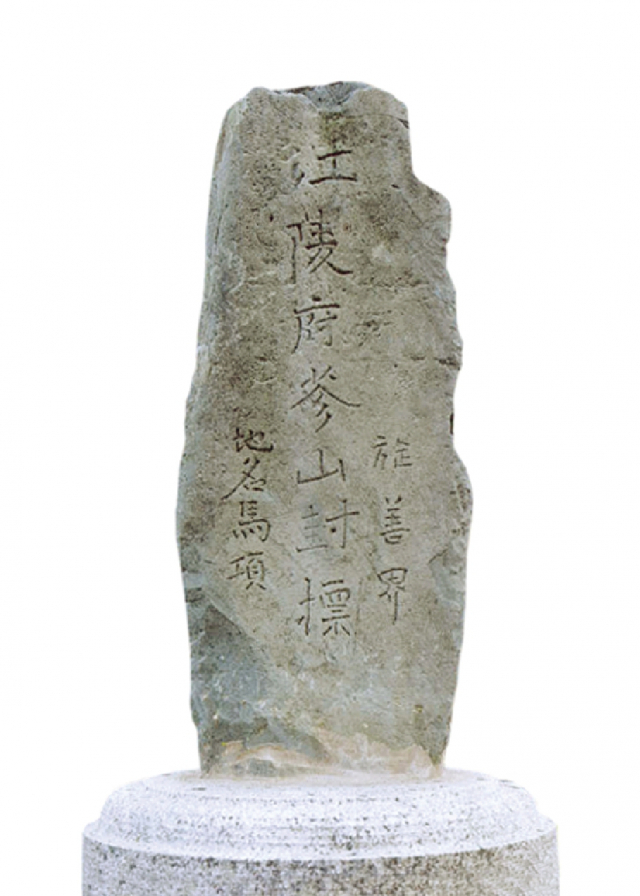 旌善界
江陵府蔘山封標
地名馬項